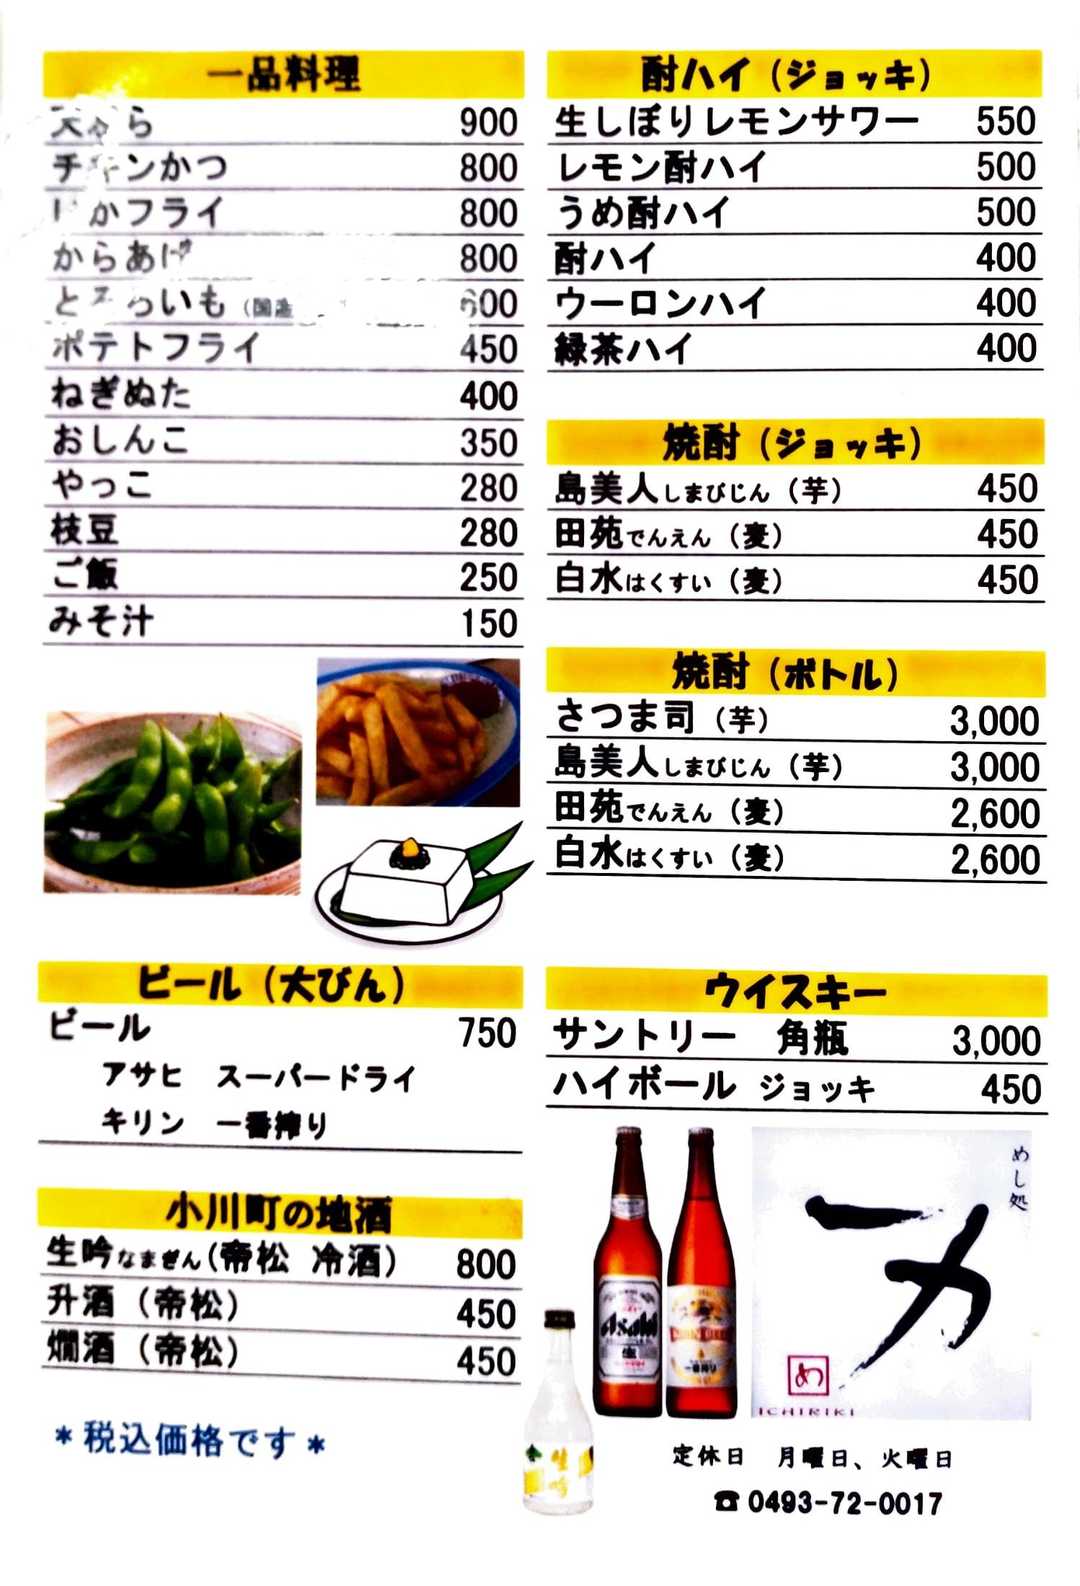 一品料理
天ぷら 900
チキンかつ 800
いかフライ 800
からあげ 800
とろろいも（国産 600
ポテトフライ 450
ねぎぬた 400
おしんこ 350
やっこ 280
枝豆 280
ご飯 250
みそ汁 150
ビール（大びん）
ビール 750
アサヒ スーパードライ
キリン 一番搾り
小川町の地酒
生吟なまぎん（帝松 冷酒） 800
升酒（帝松） 450
燗酒（帝松） 450
＊税込価格です＊
酎ハイ（ジョッキ）
生しぼりレモンサワー 550
レモン酎ハイ 500
うめ酎ハイ 500
酎ハイ 400
ウーロンハイ 400
緑茶ハイ 400
焼酎（ジョッキ）
島美人しまびじん（芋） 450
田苑でんえん（麦） 450
白水はくすい（麦） 450
焼酎（ボトル）
さつま司（芋） 3,000
島美人しまびじん（芋） 3,000
田苑でんえん（麦） 2,600
白水はくすい（麦） 2,600
ウイスキー
サントリー 角瓶 3,000
ハイボール ジョッキ 450
Asahi
生
一番搾り
生吟
めし処
一力
め
ICHIRIKI
定休日 月曜日、火曜日
☎0493-72-0017